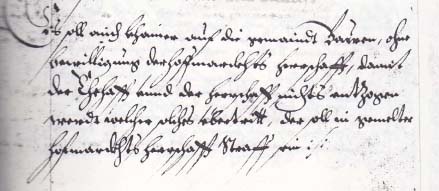 Es soll auch khainer auf die gemaindt Bauen, ohne
bewilligung der hoffmarckhts herrschafft, damit
der Ehehafft unnd der herrschafft nichts entzogen
werdt welcher solches übertritt, der soll in gemelter
hofmarckhts herrschafft Straff sein